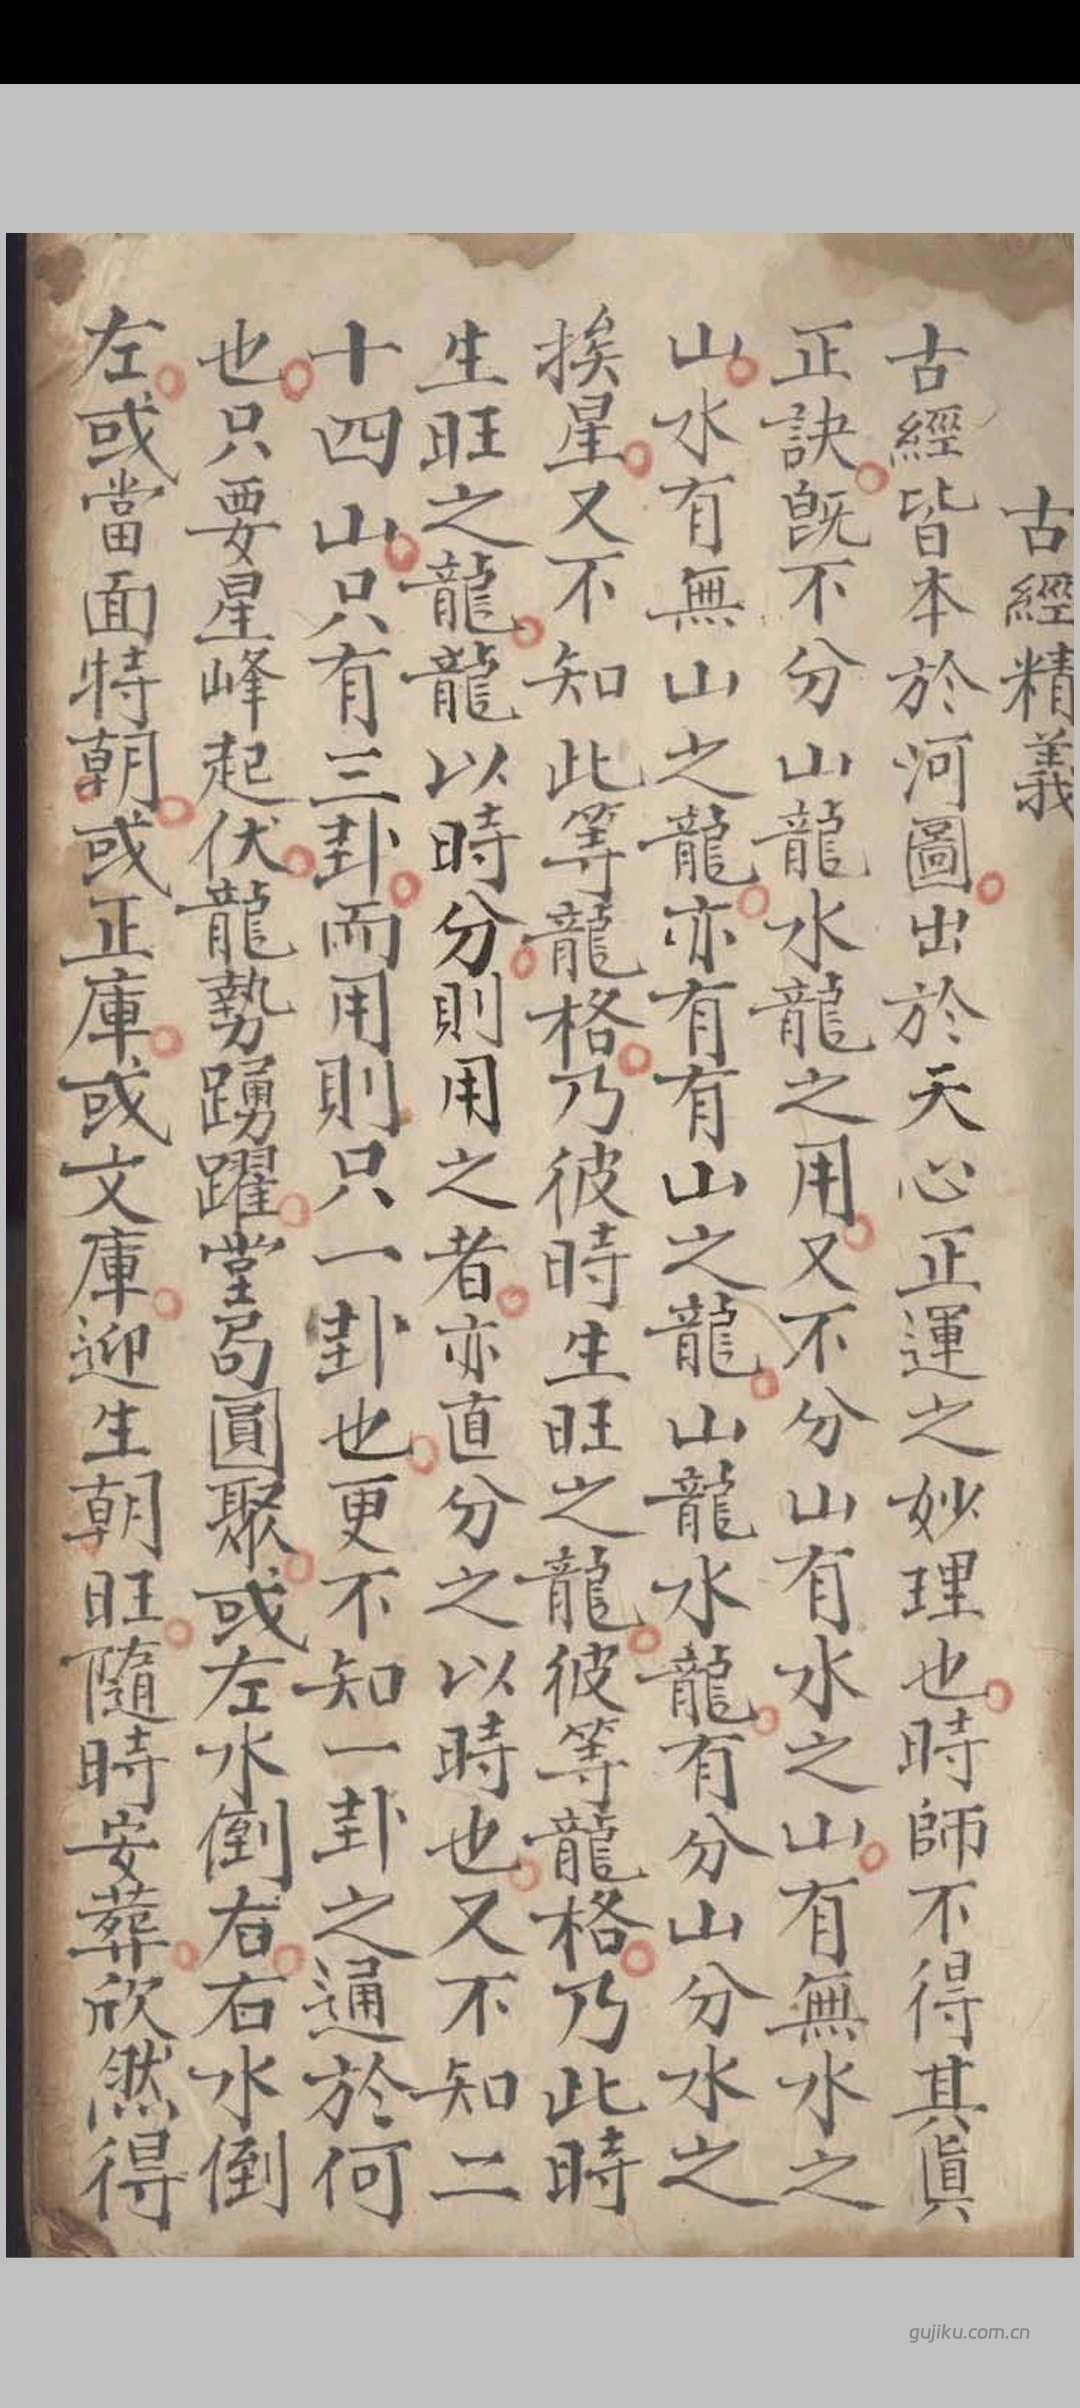 古經精義
古經皆本於河圖出於天心正運之妙理也時師不得其眞
正訣旣不分山龍水龍之用又不分山有水之山有無水之
山水有無山之龍亦有有山之龍山龍水龍有分山分水之
挨星又不知此等龍格乃彼時生旺之龍彼等龍格乃此時
生旺之龍龍以時分則用之者亦直分之以時也又不知二
十四山只有三卦而用則只一卦也更不知一卦之通於何
也只要星峰起伏龍勢踴躍堂局圓聚或左水倒右右水倒
左或當面特朝或正庫或文庫迎生朝旺隨時安葬欣然得
gujiku.com.cn